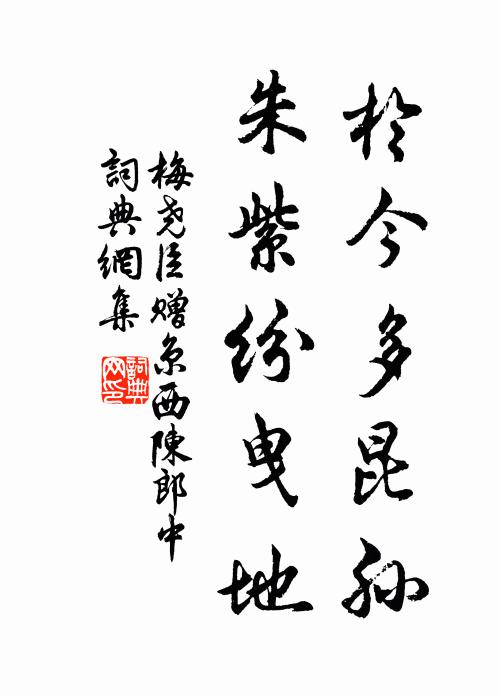 於今多昆孙
朱紫纷曳地
梅尧臣赠京西陳郎中
詞典網集
詞典网印